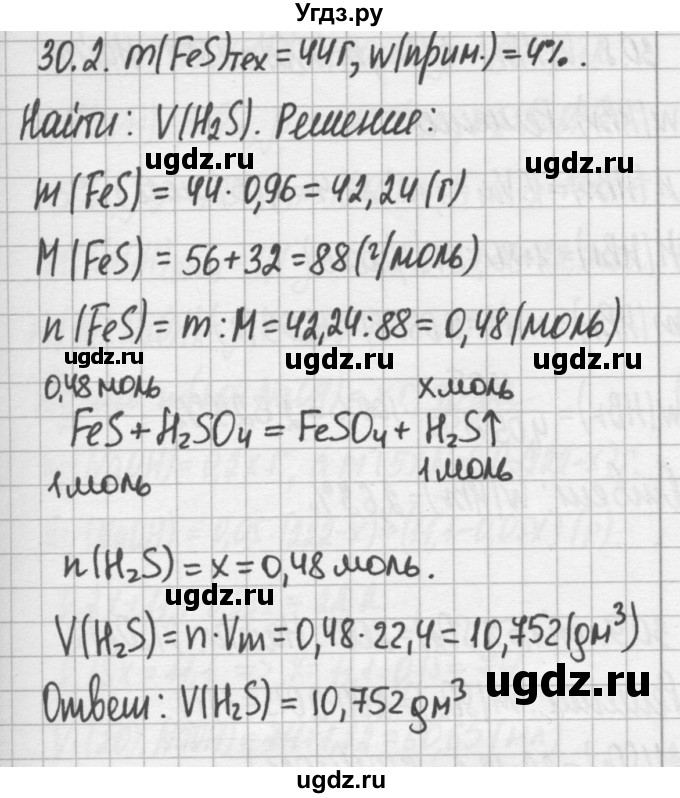 Угдз.ру
30.2. m(FeS)тех = 44г, w(прим.) = 4%.
Найти: V(H₂S). Решение:
ugdz.ru ugdz.ru
m(FeS) = 44·0,96 = 42,24(г)
M(FeS) = 56+32 = 88(г/моль)
n(FeS) = m:M = 42,24:88 = 0,48(моль)
ugdz.ru ugdz.ru ugdz.ru
0,48 моль x моль
FeS + H₂SO₄ = FeSO₄ + H₂S↑
1 моль 1 моль
n(H₂S) = x = 0,48 моль.
ugdz.ru
V(H₂S) = n·Vm = 0,48·22,4 = 10,752(дм³)
ugdz.ru
Ответ: V(H₂S) = 10,752 дм³
ugdz.ru